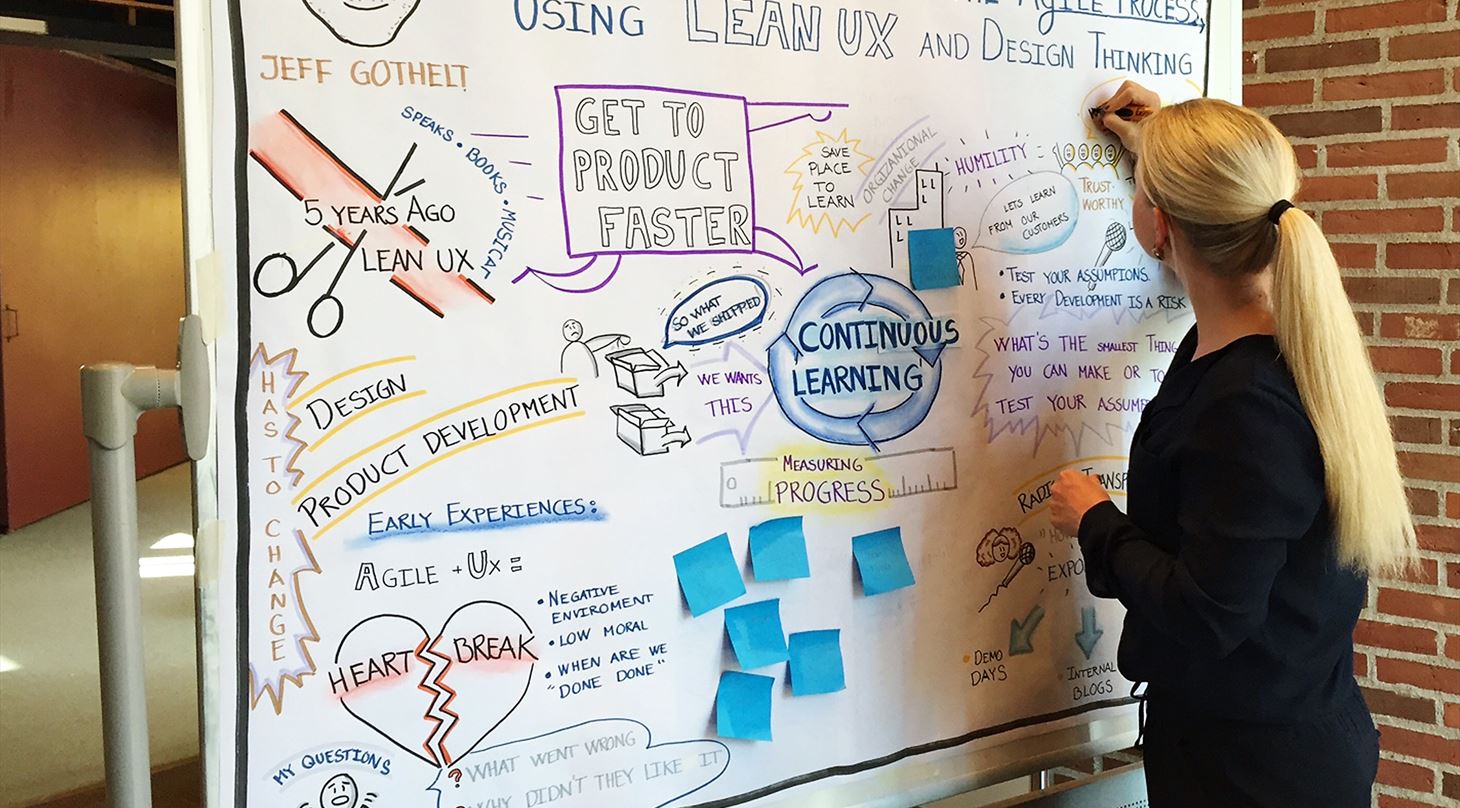 THE AGILE PROCESS,
USING LEAN UX AND DESIGN THINKING
JEFF GOTHELT
SPEAKS • BOOKS • MUSICAL
5 YEARS AGO
LEAN UX
GET TO
PRODUCT
FASTER
SAVE
PLACE
TO
LEARN
ORGIZANIONAL
CHANGE
HUMILITY
LETS LEARN
FROM OUR
CUSTOMERS
TRUST-
WORTHY
• TEST YOUR ASSUMPIONS.
• EVERY DEVELOPMENT IS A RISK
WHAT'S THE SMALLEST THING
YOU CAN MAKE OR TO
TEST YOUR ASSUMP
SO WHAT
WE SHIPPED
WE WANTS
THIS
CONTINUOUS
LEARNING
MEASURING
PROGRESS
HAS TO CHANGE
DESIGN
PRODUCT DEVELOPMENT
EARLY EXPERIENCES:
AGILE + UX =
HEART BREAK
• NEGATIVE
ENVIROMENT
• LOW MORAL
• WHEN ARE WE
"DONE DONE"
MY QUESTIONS
? WHAT WENT WRONG
WHY DIDN'T THEY LIKE IT
• DEMO
DAYS
• INTERNAL
BLOGS